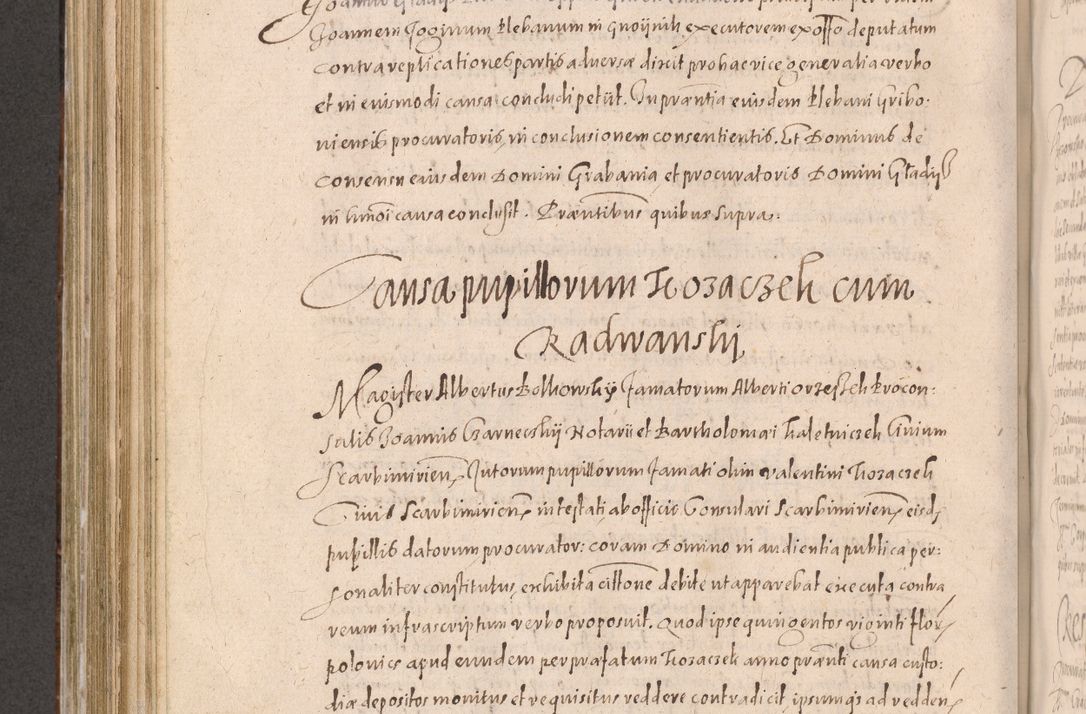 Joannem Joginum Plebanum in Gnoijnik executorem ex offo deputatum
contra replicationes partis adversæ dixit pro hac vice generalia verbo
et in eiusmodi causa concludi petiit. In præntia eiusdem Plebani Gribo:
viensis procuratoris, in conclusionem consentientis. Et Dominus de
consensu eiusdem Domini Grabania, et procuratoris Domini Gładijs
in hmoi causa conclusit. Præntibus quibus supra.
Causa pupillorum Kozaczek cum
Radwanskij
Magister Albertus Bolkowskij famatorum Alberti Orzessek Procon:
sulis Joannis Czarneczkij Notarii et Bartholomæi Kaletniczek Civium
Scarbimirien Tutorum pupillorum famati olim Valentini Kozaczek
Civis Scarbimirien intestati ab officio Consulari Scarbimirien eisd
pupillis datorum procurator: coram Domino in audientia publica per:
sonaliter constitutus, exhibita cittone debite ut apparebat executa contra
reum infrascriptum verbo proposuit. Quod ipse quingentos viginti flor
polonics apud eundem per præfatum Kozaczek anno prænti causa custo:
diæ depositos monitus et requisitus reddere contradicit, ipsumqs ad redden